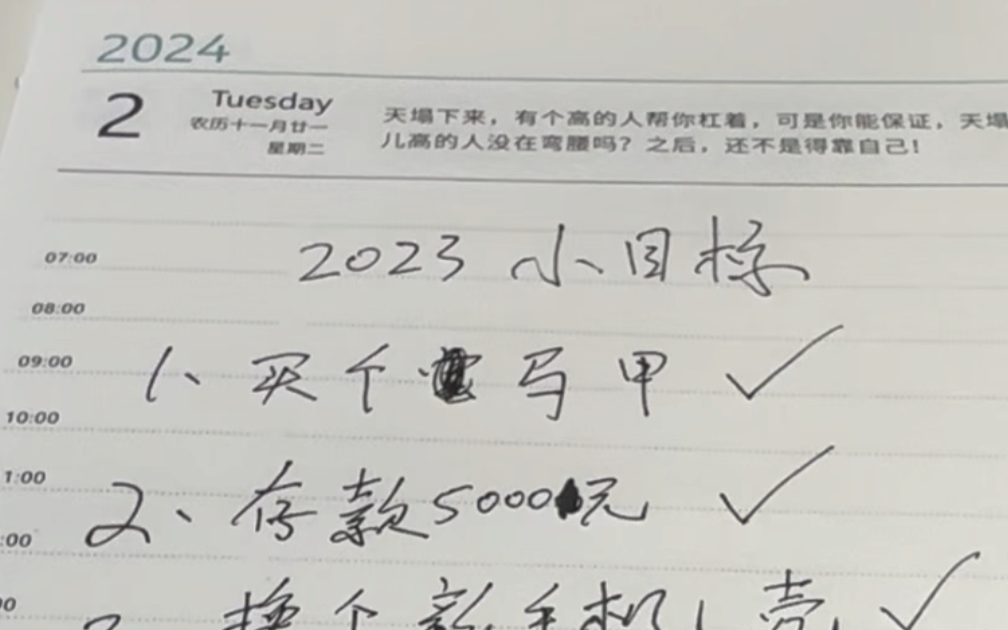 2024
2
Tuesday
农历十一月廿一
星期二
天塌下来，有个高的人帮你杠着，可是你能保证，天塌
儿高的人没在弯腰吗？之后，还不是得靠自己！
2023 小目标
07:00
08:00
09:00
1、买个 写 甲 ✓
10:00
1:00
2、存款5000元 ✓
:00
00
换个新手机壳 ✓